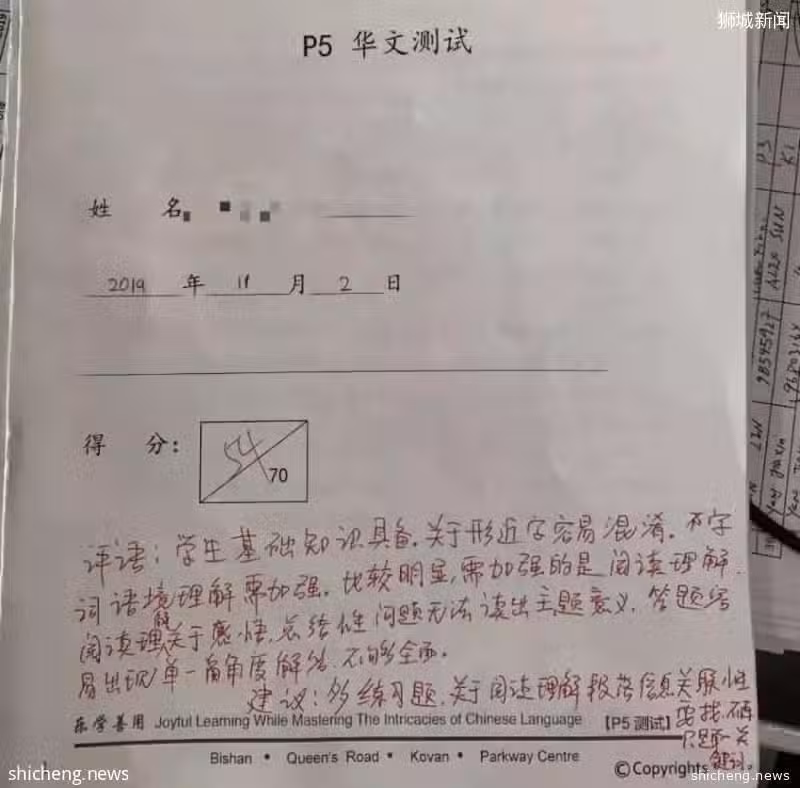 狮城新闻
P5 华文测试
姓 名
2019 年 11 月 2 日
得 分：
54 70
评语：学生基础知识具备，关于形近字容易混淆。
词语境理解需加强。比较明显，需加强的是阅读理解，
阅读理解关于感悟，总结性问题无法读出主题意义，答题容
易出现单一角角度解答，不够全面。
建议：多练习题，关于阅读理解 信息关联性
要找
关
键词。
乐学善用 Joyful Learning While Mastering The Intricacies of Chinese Language 【P5 测试】
Bishan • Queen's Road • Kovan • Parkway Centre
©Copyrights
shicheng.news
shicheng.news
P3
K1
98545927
ALZA SUN